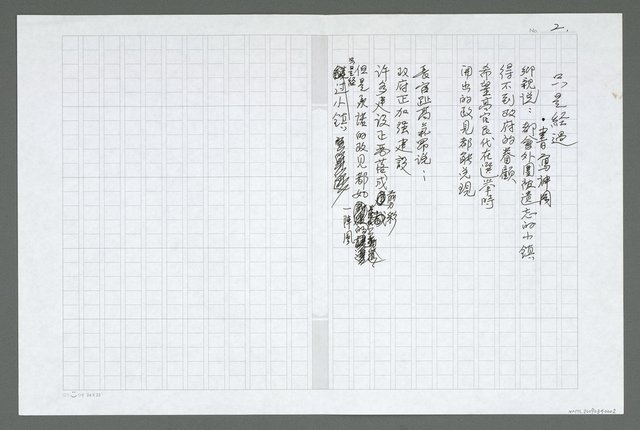 No. 2.
只是經過
・書寫神岡
鄉親說：都會外圍被遺忘的小鎮
得不到政府的眷顧
希望高官民代在選舉時
開出的政見都能兌現
長官趾高氣昂說：
政府正加強建設
許多建設正要落成剪彩
但是承諾的政見都如一陣風
只是經過小鎮